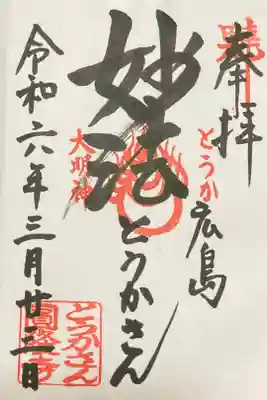 奉拝
とうか
広島
妙法
とうかさん
大明神
令和六年三月廿三日
とうかさん
圓隆寺